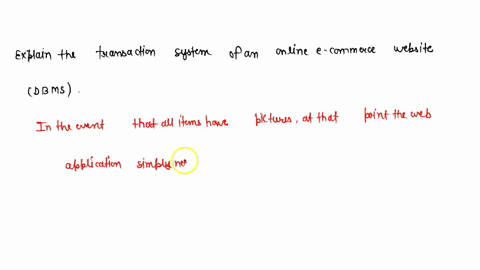 Explain the transaction system of an online e-commerce website
(DBMS).
In the event that all items have pictures, at that point the web
application simply ne